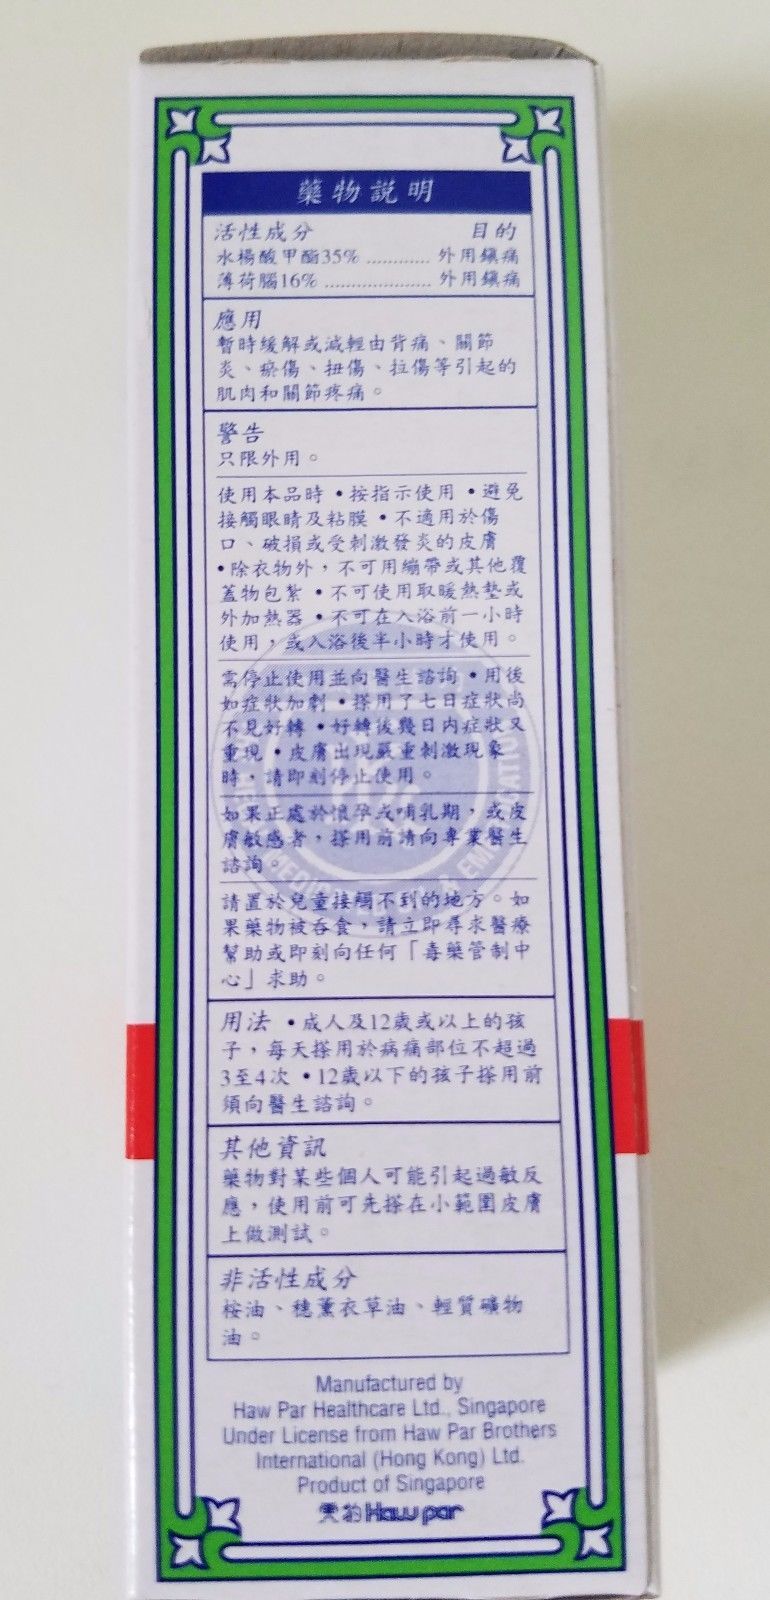 藥物説明
活性成分 目的
水楊酸甲酯35% ............ 外用鎮痛
薄荷腦16% ..................... 外用鎮痛
應用
暫時緩解或減輕由背痛、關節
炎、瘀傷、扭傷、拉傷等引起的
肌肉和關節疼痛。
警告
只限外用。
使用本品時 •按指示使用 •避免
接觸眼睛及粘膜 •不適用於傷
口、破損或受刺激發炎的皮膚
•除衣物外，不可用繃帶或其他覆
蓋物包紮 •不可使用取暖熱墊或
外加熱器 •不可在入浴前一小時
使用，或入浴後半小時才使用。
需停止使用並向醫生諮詢 •用後
如症狀加劇 •搽用了七日症狀尚
不見好轉 •好轉後幾日内症狀又
重現 •皮膚出現嚴重刺激現象
時，請即刻停止使用。
如果正處於懷孕或哺乳期，或皮
膚敏感者，搽用前請向專業醫生
諮詢。
請置於兒童接觸不到的地方。如
果藥物被吞食，請立即尋求醫療
幫助或即刻向任何「毒藥管制中
心」求助。
用法 •成人及12歲或以上的孩
子，每天搽用於病痛部位不超過
3至4次 •12歲以下的孩子搽用前
須向醫生諮詢。
其他資訊
藥物對某些個人可能引起過敏反
應，使用前可先搽在小範圍皮膚
上做測試。
非活性成分
桉油、穗薰衣草油、輕質礦物
油。
Manufactured by
Haw Par Healthcare Ltd., Singapore
Under License from Haw Par Brothers
International (Hong Kong) Ltd.
Product of Singapore
虎豹 Haw par